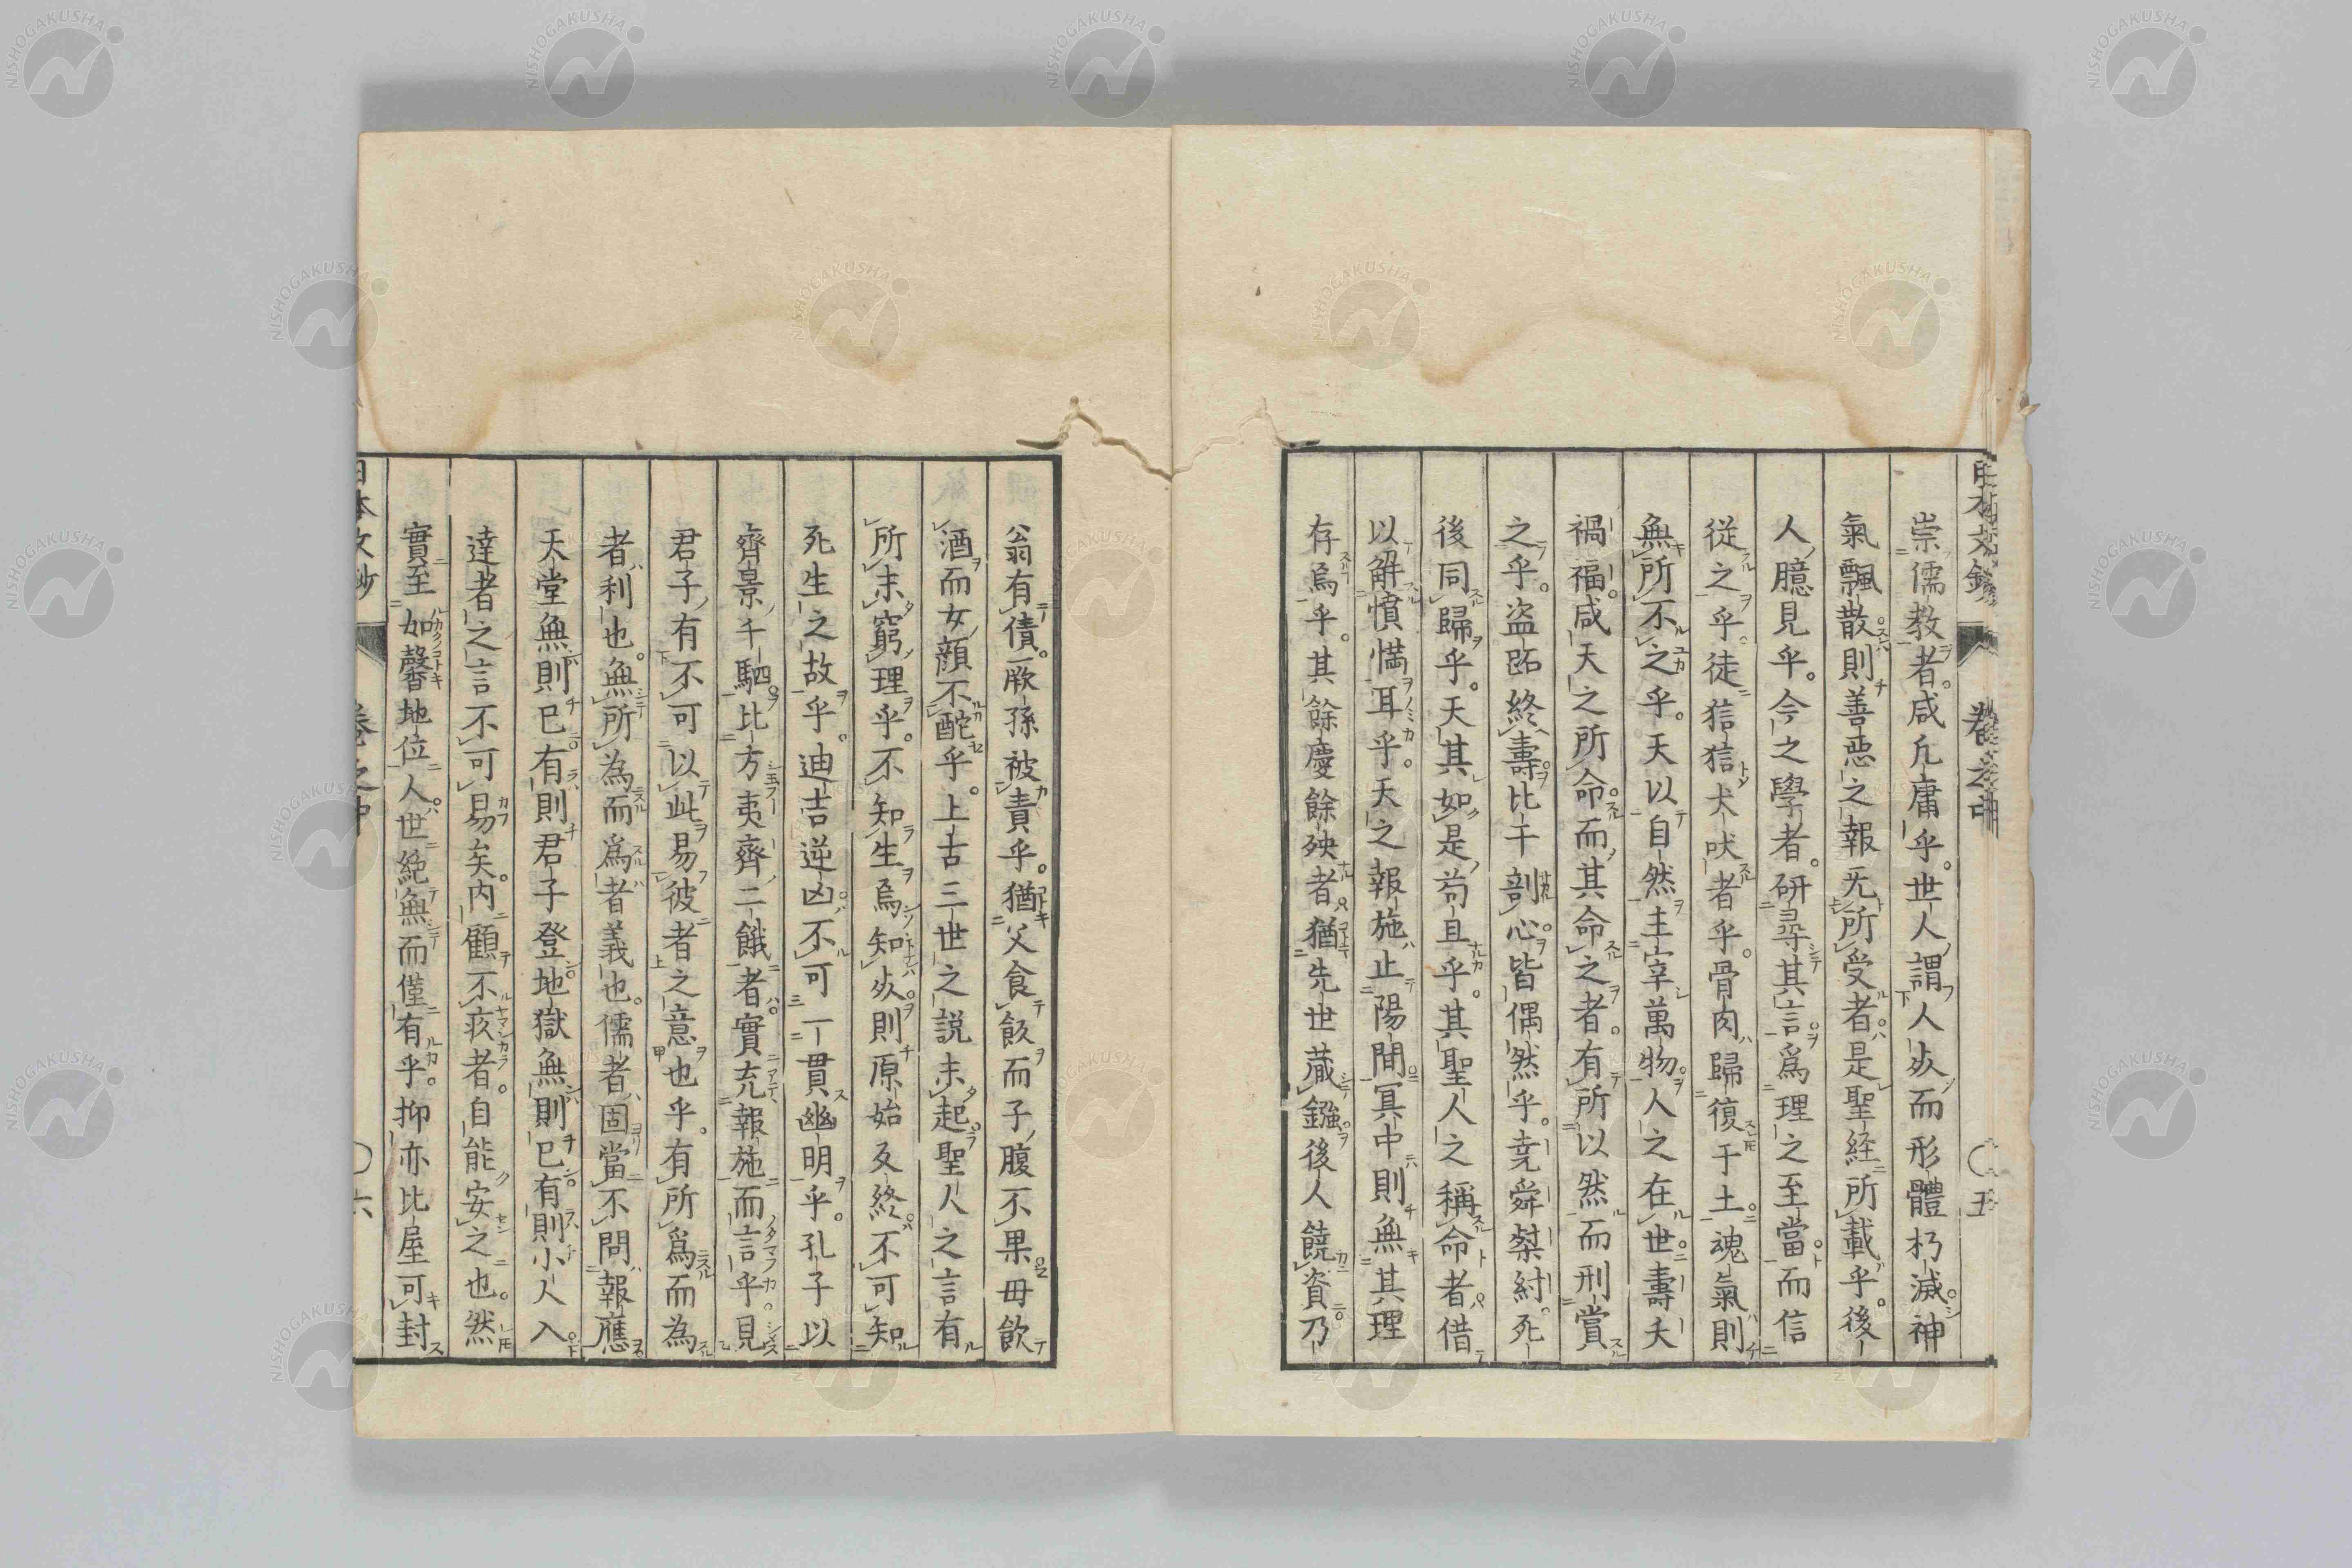 崇儒教者。咸凡庸乎。世人謂人㱦而形體朽滅。神
氣飄散則善惡之報无所受者。是聖経所載乎。後
人臆見乎。今之學者。研尋其言爲理之至當。而信
従之乎。徒狺狺犬吠者乎。骨肉歸復于土。魂氣則
無所不之乎。天以自然主宰萬物。人之在世。壽夭
禍福。咸天之所命。而其命之者。有所以然而刑賞
之乎。盗跖終壽。比干剖心。皆偶然乎。堯舜桀紂。死
後同歸乎。天其如是苟且乎。其聖人之稱命者。借
以解憤懣耳乎。天之報施止陽間。冥中則無其理
存焉乎。其餘慶餘殃者。猶先世蔵鏹。後人饒資。乃
翁有債。厥孫被責乎。猶父食飯而子腹不果。母飲
酒而女顔不酡乎。上古三世之説未起。聖人之言有
所未窮理乎。不知生焉知㱦。則原始及終。不可知
死生之故乎。迪吉逆凶。不可一貫幽明乎。孔子以
齊景千駟。比方夷齊二餓者。實充報施而言乎。見
君子有不可以此易彼者之意也乎。有所爲而為
者利也。無所為而爲者義也。儒者固當不問報應
天堂無則已。有則君子登。地獄無則已。有則小人入
達者之言不可易矣。内顧不疚者。自能安之也。然
實至如馨地位人。世絶無而僅有乎。抑亦比屋可封